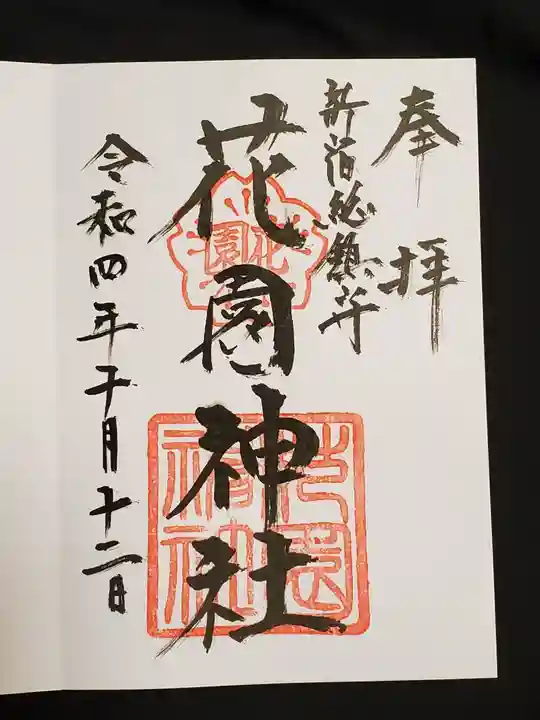 奉拝
新宿総鎮守
花園神社
花園
令和四年十月十二日